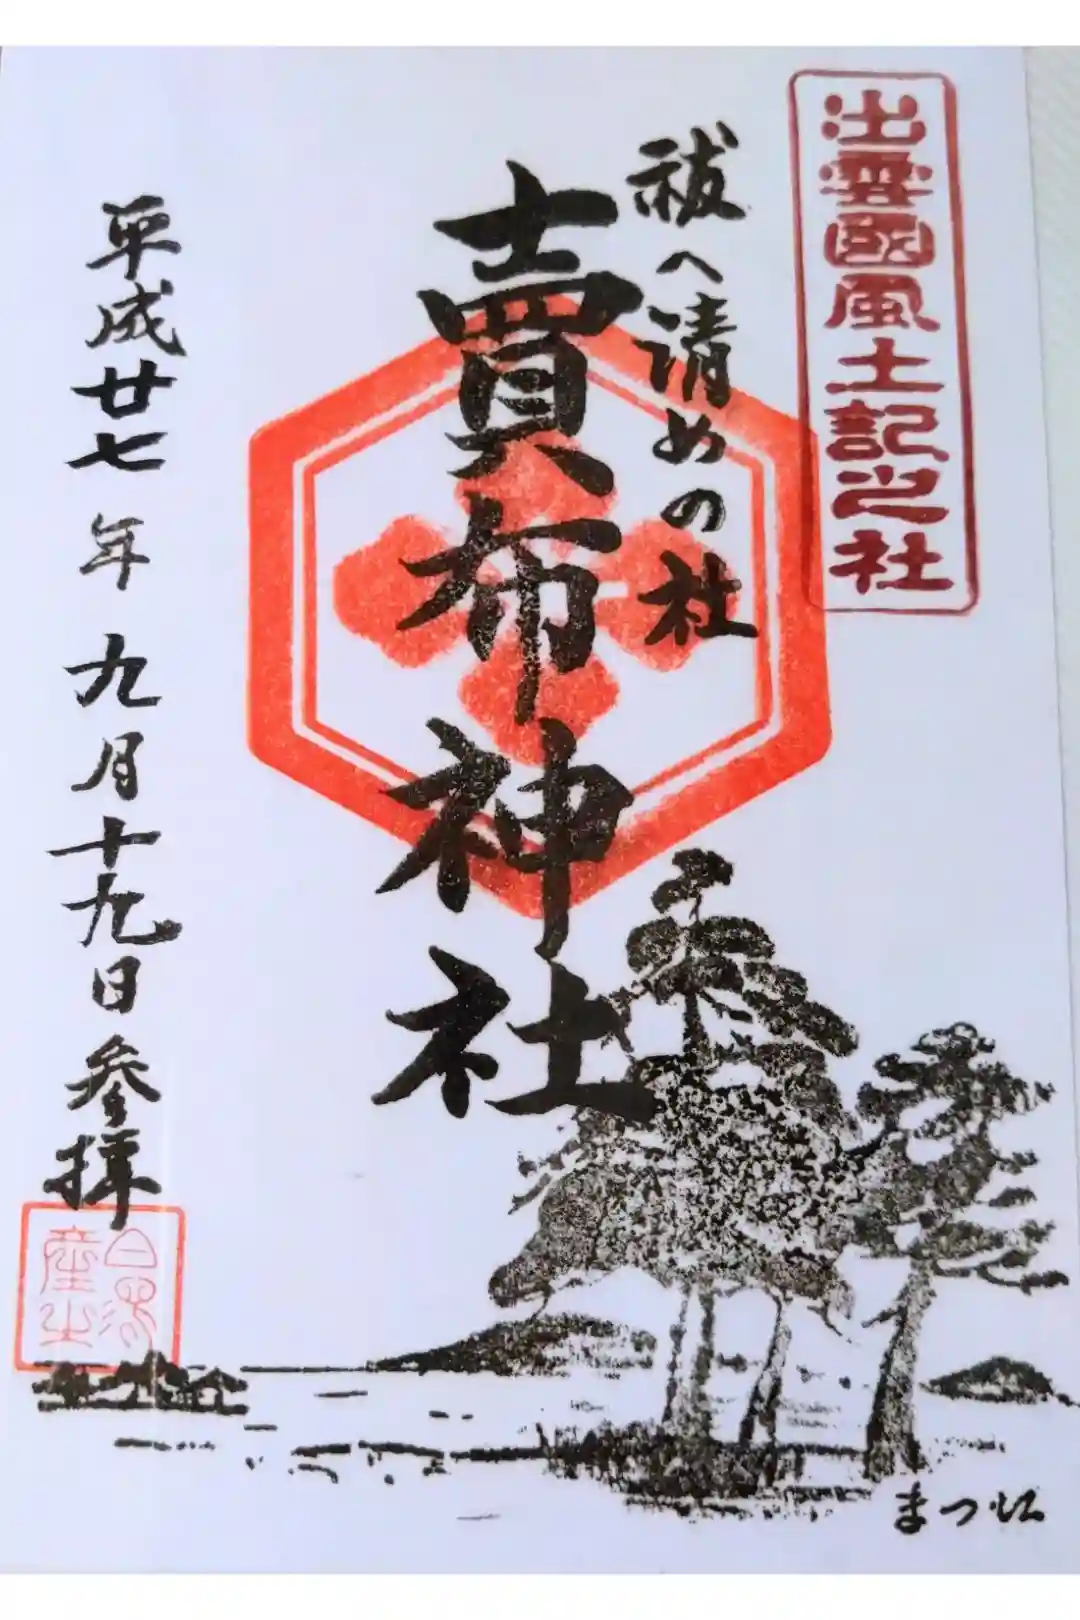 出雲國風土記之社
祓へ清めの社
賣布神社
平成廿七年九月十九日参拝
まつ江